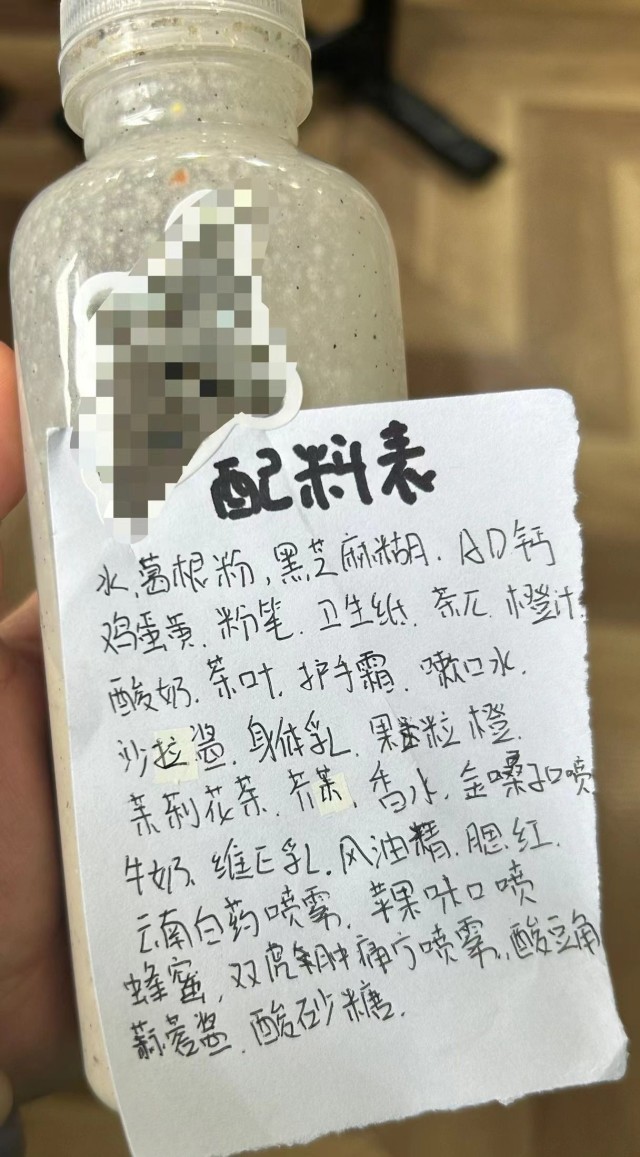 配料表
水,葛根粉,黑芝麻糊.AD钙
鸡蛋黄.粉笔.卫生纸.茶π.橙汁.
酸奶.茶叶.护手霜.嗽口水.
沙拉酱.身体乳.果粒橙.
茉莉花茶.芥末.香水.金嗓子口喷
牛奶.维E乳.风油精.腮红.
云南白药喷雾.苹果味口喷
蜂蜜,双虎肿痛疗喷雾.酸豆角
蒜蓉酱.酸砂糖.